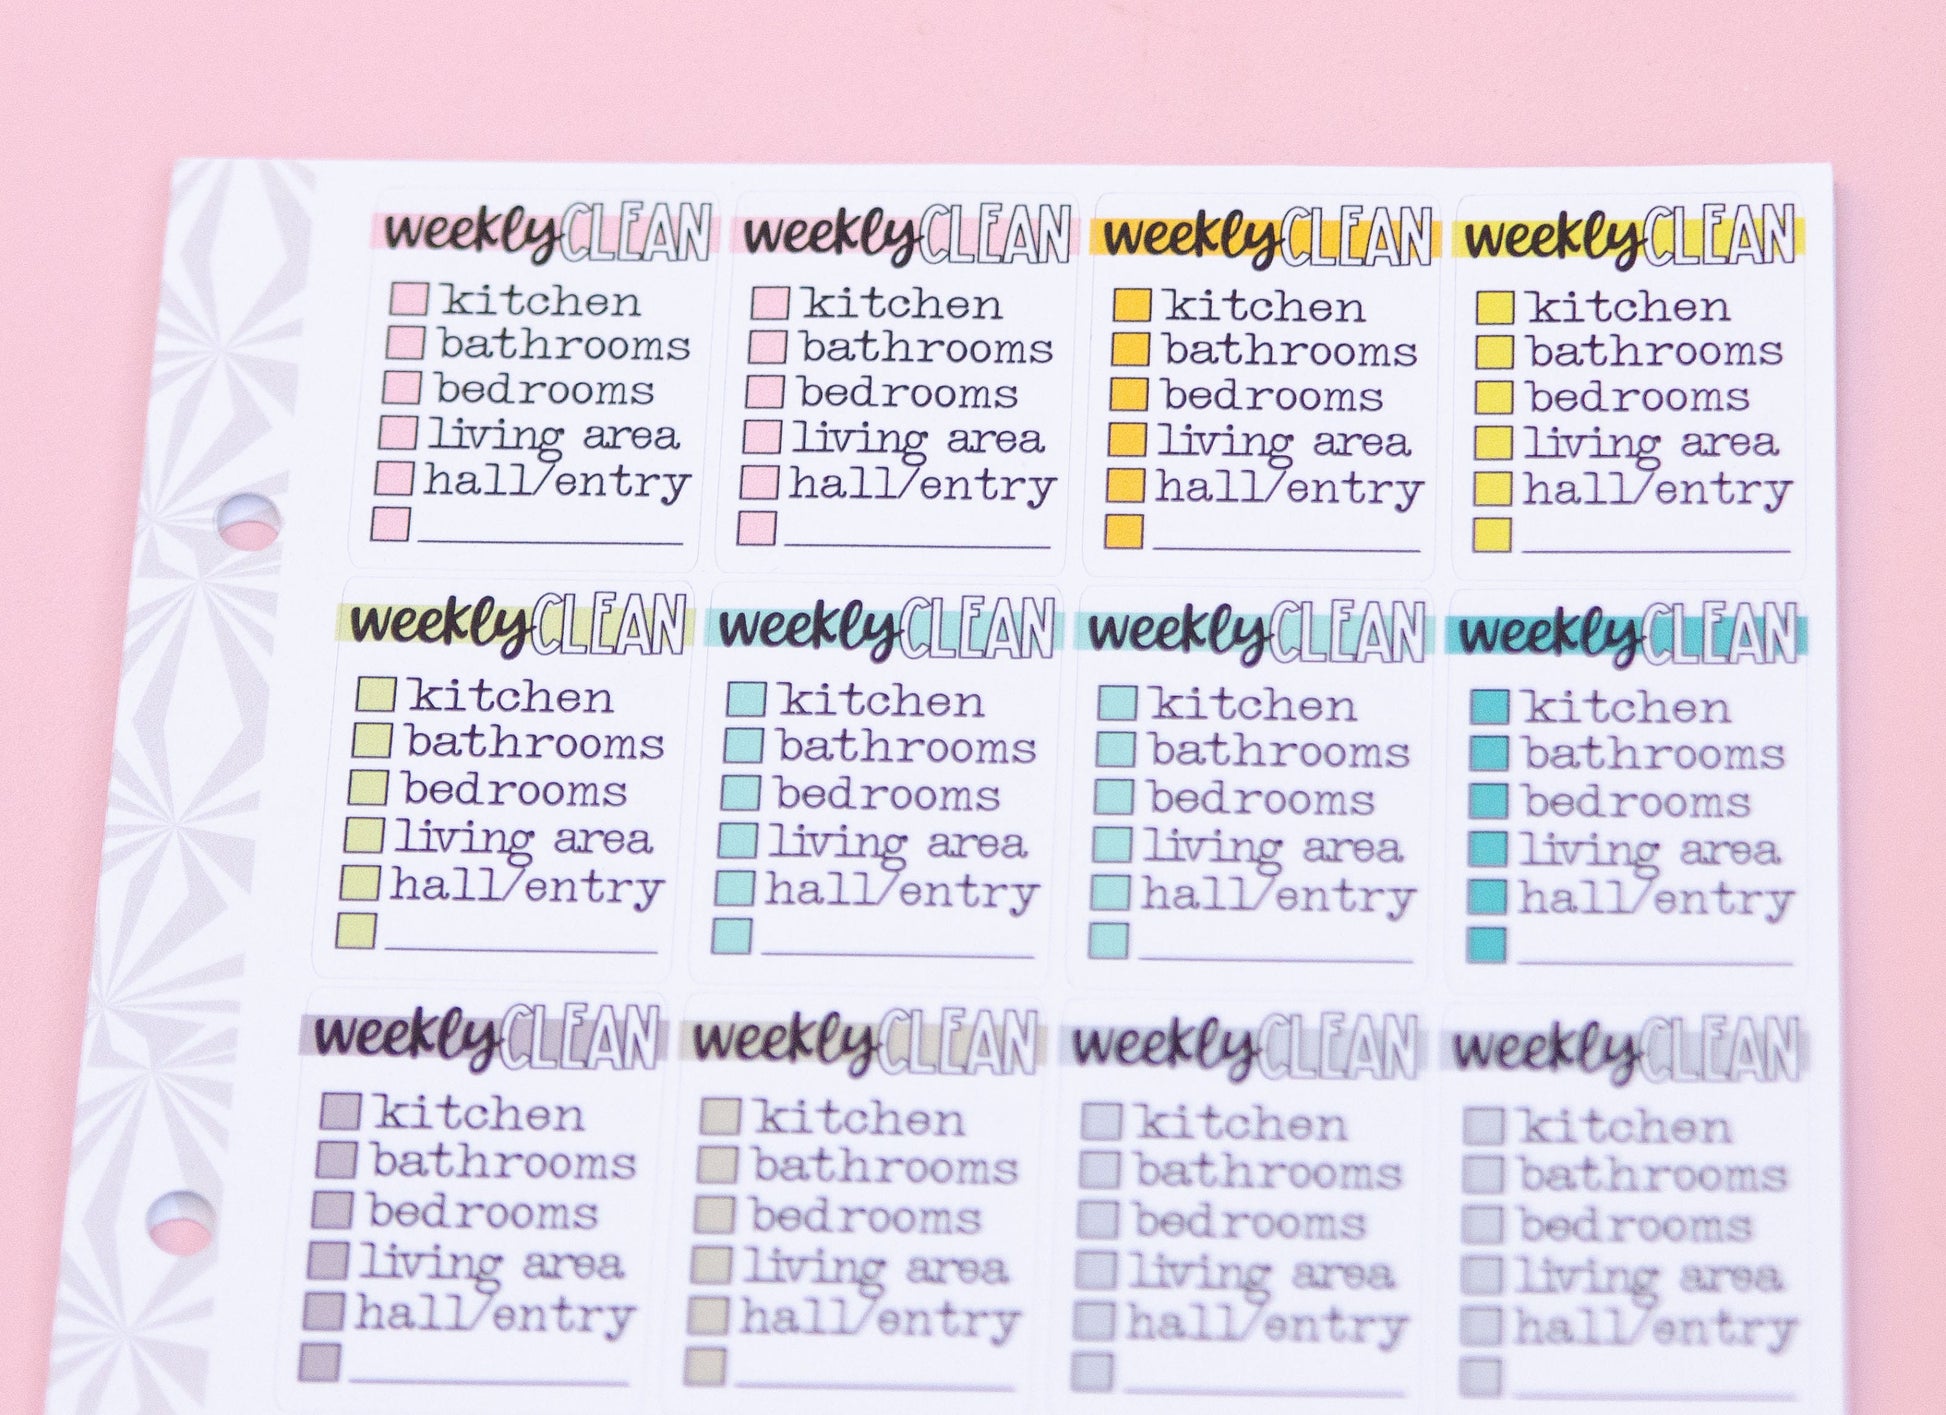 weekly CLEAN
kitchen
bathrooms
bedrooms
living area
hall/entry
weekly CLEAN
kitchen
bathrooms
bedrooms
living area
hall/entry
weekly CLEAN
kitchen
bathrooms
bedrooms
living area
hall/entry
weekly CLEAN
kitchen
bathrooms
bedrooms
living area
hall/entry
weekly CLEAN
kitchen
bathrooms
bedrooms
living area
hall/entry
weekly CLEAN
kitchen
bathrooms
bedrooms
living area
hall/entry
weekly CLEAN
kitchen
bathrooms
bedrooms
living area
hall/entry
weekly CLEAN
kitchen
bathrooms
bedrooms
living area
hall/entry
weekly CLEAN
kitchen
bathrooms
bedrooms
living area
hall/entry
weekly CLEAN
kitchen
bathrooms
bedrooms
living area
hall/entry
weekly CLEAN
kitchen
bathrooms
bedrooms
living area
hall/entry
weekly CLEAN
kitchen
bathrooms
bedrooms
living area
hall/entry